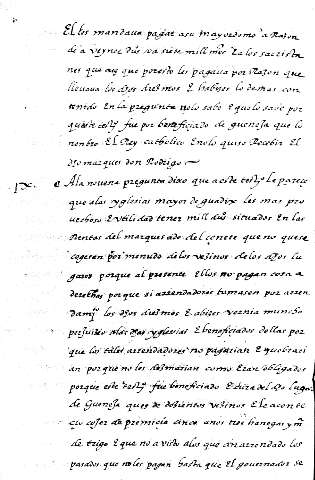 el les mandava pagar a su mayordomo a Razon
de a veynte dos o a siete mill mrs E a los sacrista
nes que cree que por esto les pagava por Razon que
llevava los dhos diezmos E habizes lo demas con
tenido En la pregunta no lo sabe E que lo save por
que este testigo fue por beneficiado de gueneja que lo
nonbro El Rey catholico E no lo quiso Recebir El
dho marques don Rodrigo
IX. A la novena pregunta dixo que a este testigo le parece
que a las yglesias mayor de guadix les mas pro
vechoso E utilidad tener mill dus situados En las
Rentas del marquesado del cenete que no que se
cogesen por menudo de los vezinos de los dhos lu
gares porque al presente Ellos no pagan cosa a
derechas porque si arrendadores tomasen por arren
damyo los dhos diezmos E abizes vernia mucho
perjuizio a las dhas yglesias E beneficiados dellas por
que los tales arrendadores no pagarian E quebrari
an porque no les dezmarian como Eran obligados
porque este testigo fue beneficiado E dura del dho lugar
de Gueneja ques de dozientos vezinos E le aconte
cio cojer de premicia cinco años tres hanegas y ma
de trigo E que no a visto a los que an arrendado los
pasados que no les pagan hasta que El governador se